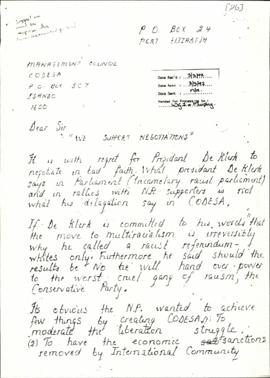 [26]
P.O. BOX 24
PORT ELIZABETH
MANAGEMENT COUNCIL
CODESA
P.O. BOX 307
ISANDO
1600
Dear Sir
"WE SUPPORT NEGOTIATIONS"
It is with regret for President De Klerk to
negotiate in bad faith. What president De Klerk
says in Parliament (Tricameral racist parliament)
and in rallies with N.P supporters is not
what his delegation say in CODESA.
If De Klerk is committed to his words that
the move to multiracialism is irreversibly
why he called a racist referendum -
whites only. Furthermore he said should the
results be "No" he will hand over power
to the worst cruel gang of racism, the
Conservative Party.
Its obvious the N.P. wanted to achieve
few things by creating CODESA (1) To
moderate the liberation struggle.
(2) To have the economic sanctions
removed by International Community